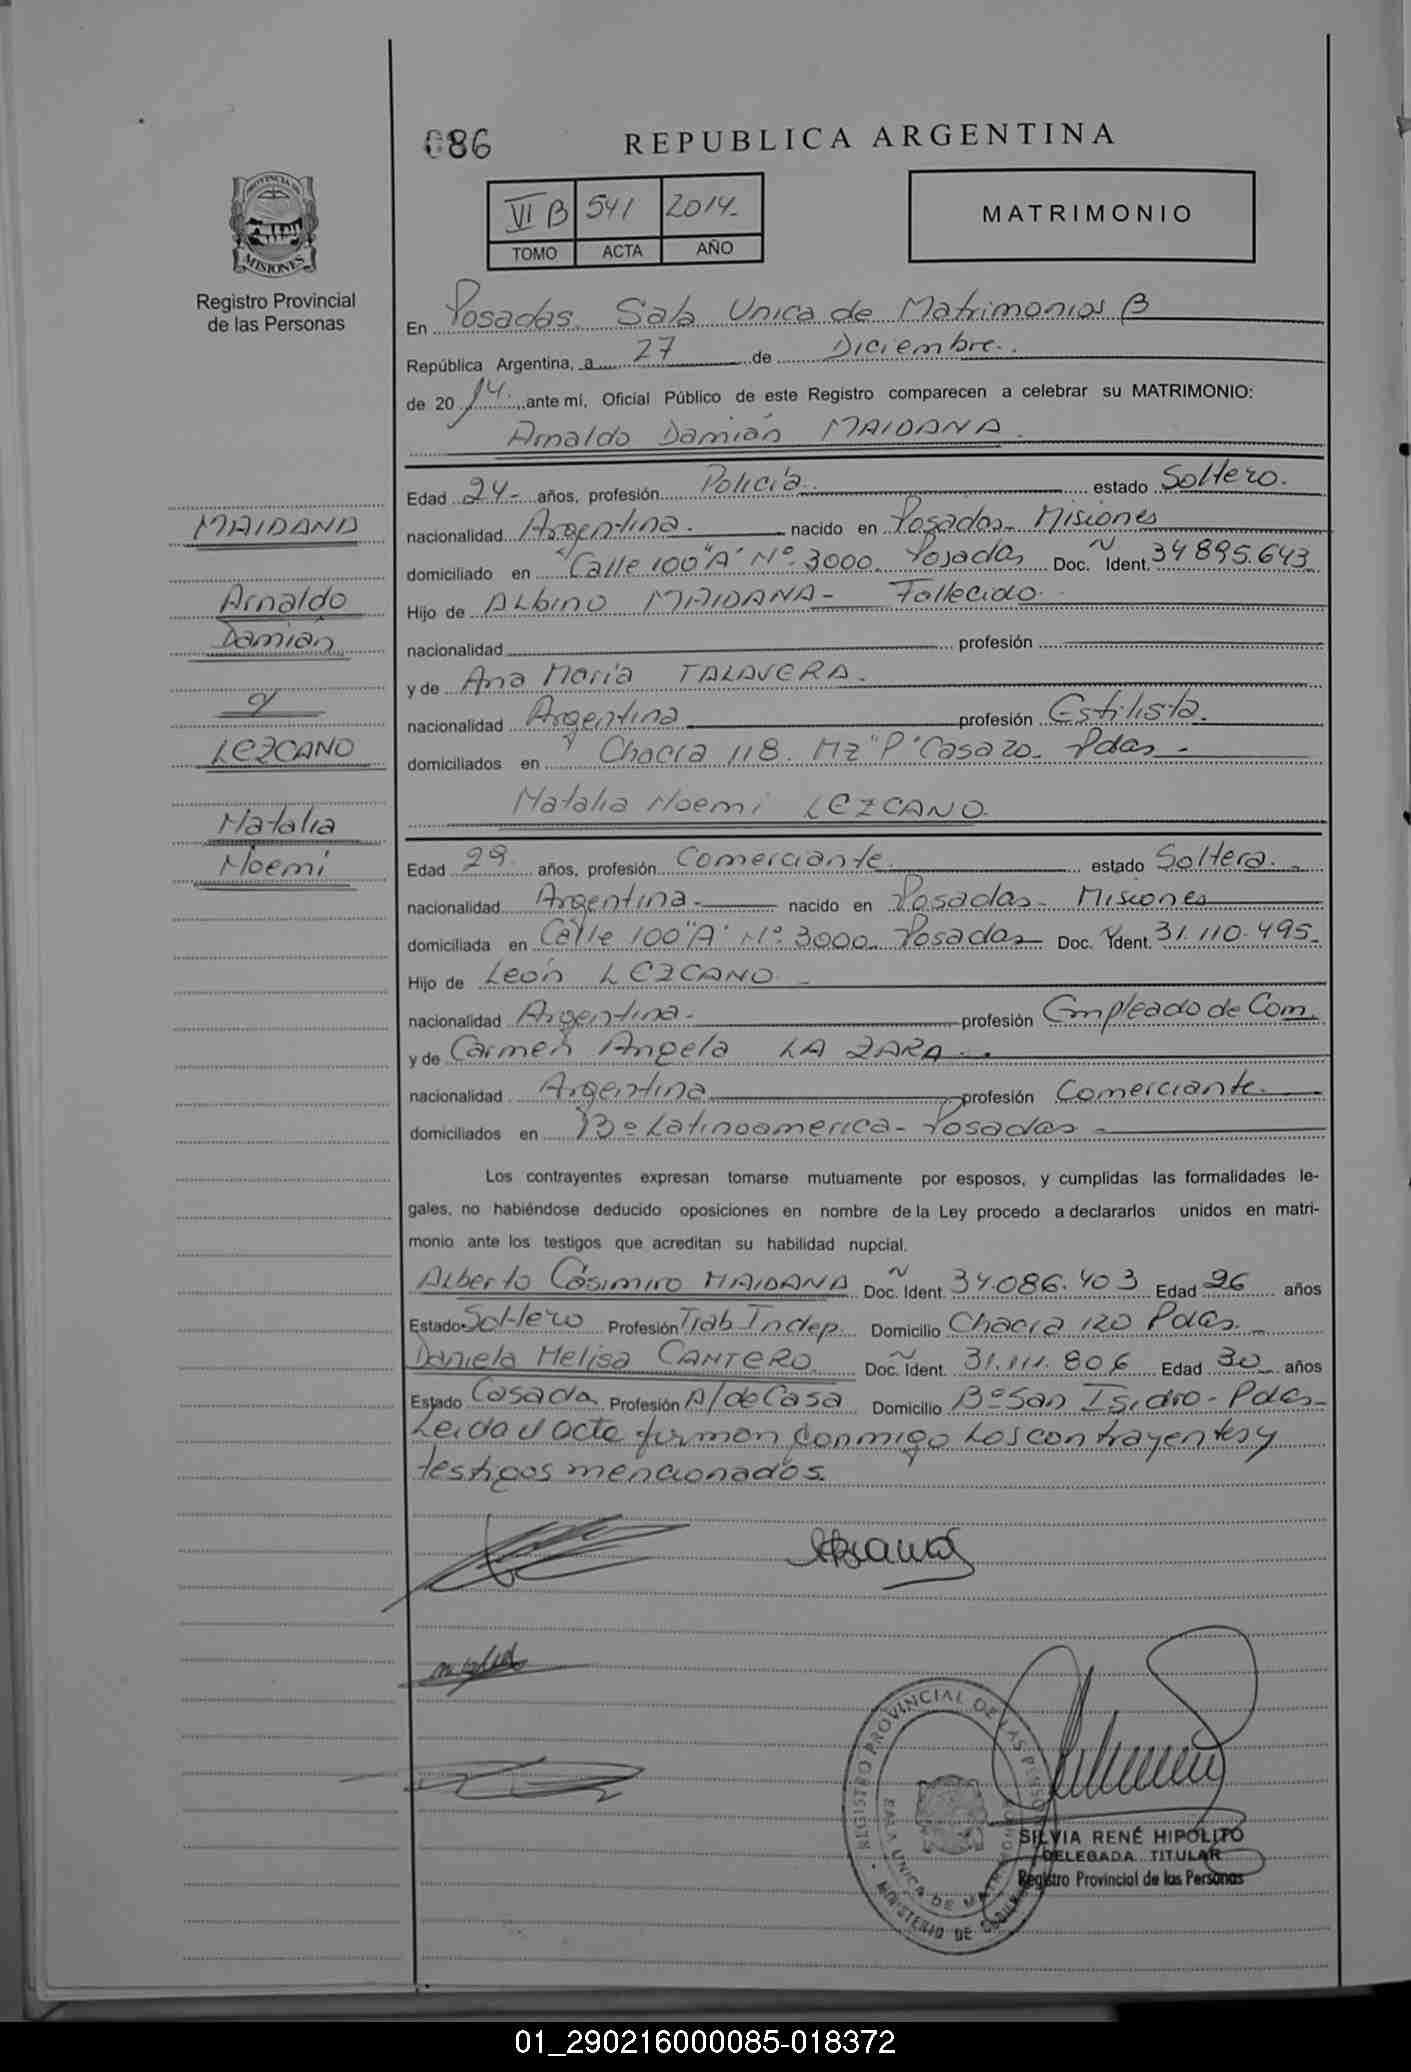 086
REPUBLICA ARGENTINA
VI B 541 2014-
TOMO ACTA AÑO
MATRIMONIO
PROVINCIA DE
MISIONES
Registro Provincial
de las Personas
En Posadas. Sala Unica de Matrimonios B
República Argentina, a 27 de Diciembre.
de 2014. ante mí, Oficial Público de este Registro comparecen a celebrar su MATRIMONIO:
Arnaldo Damián MAIDANA.
Edad 24- años, profesión Policía. estado Soltero.
nacionalidad Argentina. nacido en Posadas- Misiones
domiciliado en Calle 100"A" Nº 3000 Posadas Doc. Ident. 34895.643
Hijo de ALbino MAIDANA- Fallecido.
nacionalidad profesión
y de Ana María TALAVERA.
nacionalidad Argentina profesión Estilista.
domiciliados en Chacra 118. Mz "P" Casa 20- Pdas -
Natalia Noemi LEZCANO.
MAIDANA
Arnaldo
Damián
y
LEZCANO
Natalia
Noemi
Edad 29. años, profesión Comerciante. estado Soltera.-
nacionalidad Argentina- nacido en Posadas- Misiones
domiciliada en Calle 100"A" Nº 3000 Posadas Doc. Ident. 31.110.495-
Hijo de León LEZCANO-
nacionalidad Argentina- profesión Empleado de Com.
y de Carmen Angela LA ZARA-.
nacionalidad Argentina profesión Comerciante-
domiciliados en Bº Latinoamerica- Posadas-
Los contrayentes expresan tomarse mutuamente por esposos, y cumplidas las formalidades le-
gales, no habiéndose deducido oposiciones en nombre de la Ley procedo a declararlos unidos en matri-
monio ante los testigos que acreditan su habilidad nupcial.
ALberto Casimiro MAIDANA Doc. Ident. 34.086.403 Edad 26 años
Estado Soltero Profesión Trab Indep. Domicilio Chacra 120 Pdas.-
Daniela Melisa CANTERO Doc. Ident. 31.111.806 Edad 30 años
Estado Casada Profesión A/deCasa Domicilio Bº San Isidro- Pdas-
Leida el acta firman conmigo Los contrayentes y
testigos mencionados.
REGISTRO PROVINCIAL DE LAS PERSONAS
SALA UNICA DE MATRIMONIOS
MINISTERIO DE
SILVIA RENÉ HIPOLITO
DELEGADA TITULAR
Registro Provincial de las Personas
01_290216000085-018372